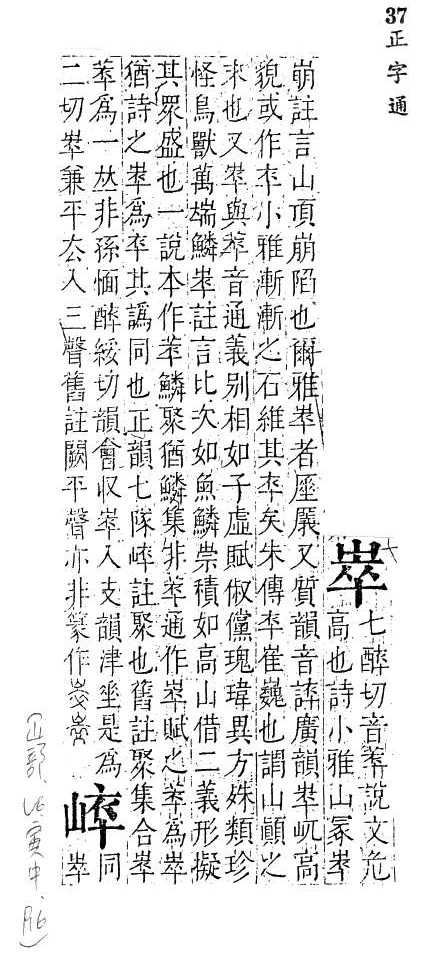 37正字通
崒
七醉切音萃說文危
高也詩小雅山冢崒
崩註言山頂崩陷也爾雅崒者厜㕒又質韻音誶廣韻崒屼高
貌或作卒小雅漸漸之石維其卒矣朱傳卒崔巍也謂山顚之
末也又崒與萃音通義别相如子虛賦俶儻瑰瑋異方殊類珍
怪鳥獸萬端鱗崒註言比次如魚鱗崇積如高山借二義形擬
其眾盛也一說本作萃鱗聚猶鱗集非萃通作崒賦之萃爲崒
猶詩之崒爲卒其譌同也正韻七隊崪註聚也舊註聚集合崒
萃爲一𠀤非孫愐醉綏切韻會収崒入支韻津垂是爲
二切崒兼平去入三聲舊註闕平聲亦非篆作
崪
同
崒
山部
寅中